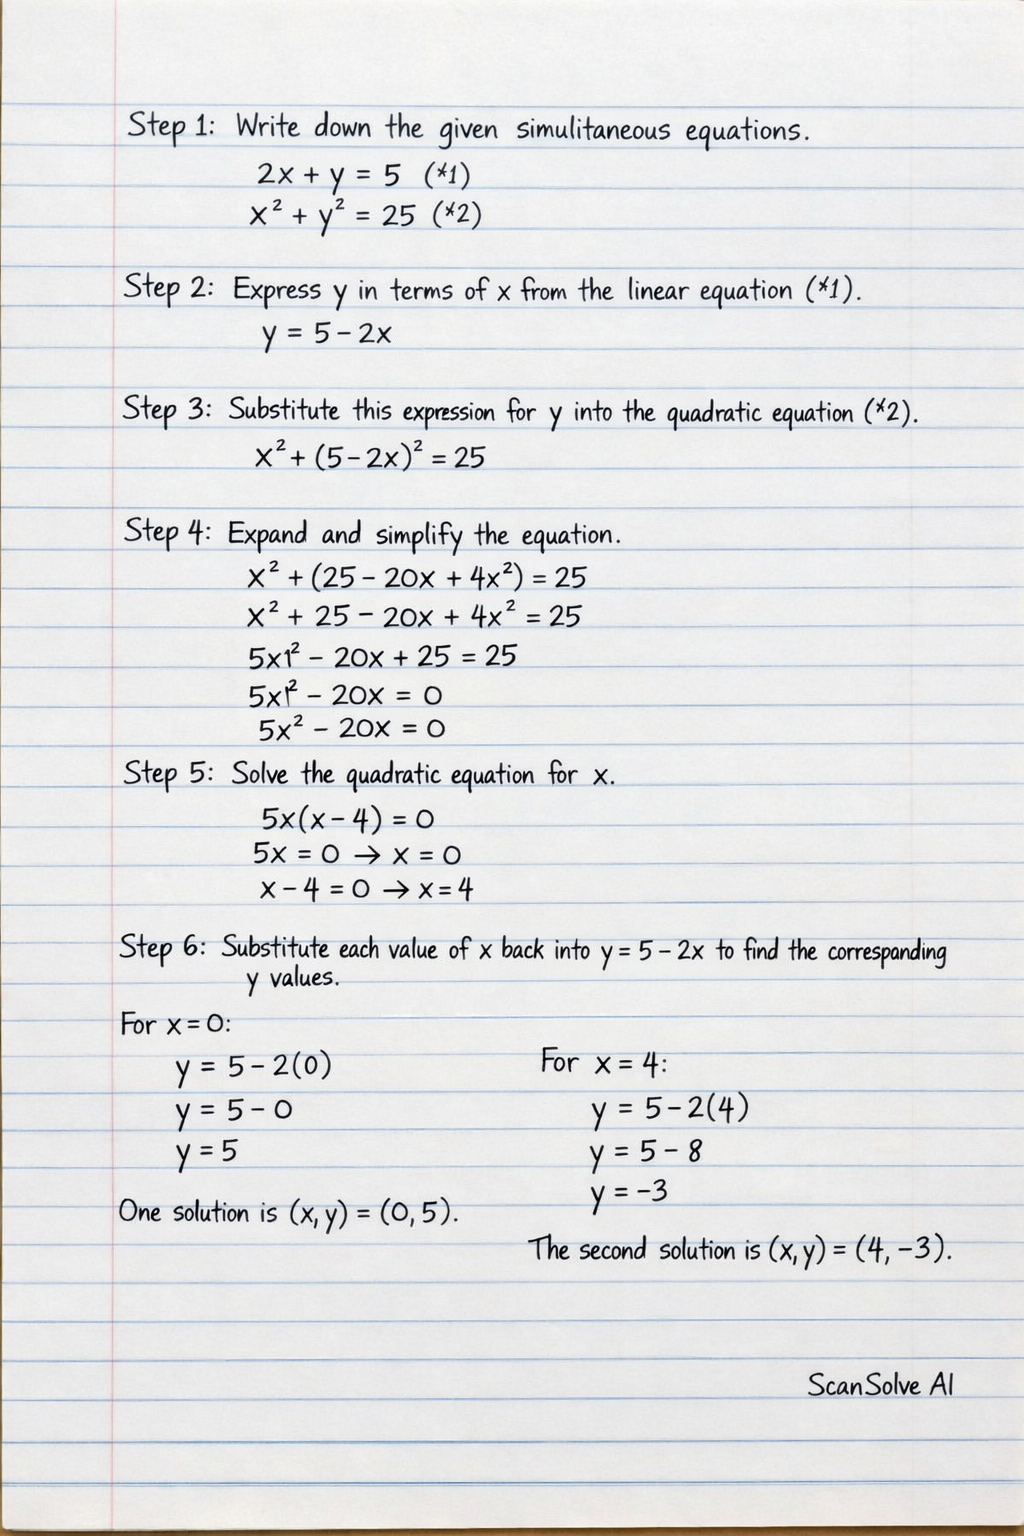 Step 1: Write down the given simulitaneous equations.
2x + y = 5 (*1)
x² + y² = 25 (*2)
Step 2: Express y in terms of x from the linear equation (*1).
y = 5 - 2x
Step 3: Substitute this expression for y into the quadratic equation (*2).
x² + (5 - 2x)² = 25
Step 4: Expand and simplify the equation.
x² + (25 - 20x + 4x²) = 25
x² + 25 - 20x + 4x² = 25
5x² - 20x + 25 = 25
5x² - 20x = 0
5x² - 20x = 0
Step 5: Solve the quadratic equation for x.
5x(x - 4) = 0
5x = 0 → x = 0
x - 4 = 0 → x = 4
Step 6: Substitute each value of x back into y = 5 - 2x to find the corresponding
y values.
For x = 0:
y = 5 - 2(0)
y = 5 - 0
y = 5
One solution is (x, y) = (0, 5).
For x = 4:
y = 5 - 2(4)
y = 5 - 8
y = -3
The second solution is (x, y) = (4, -3).
ScanSolve AI